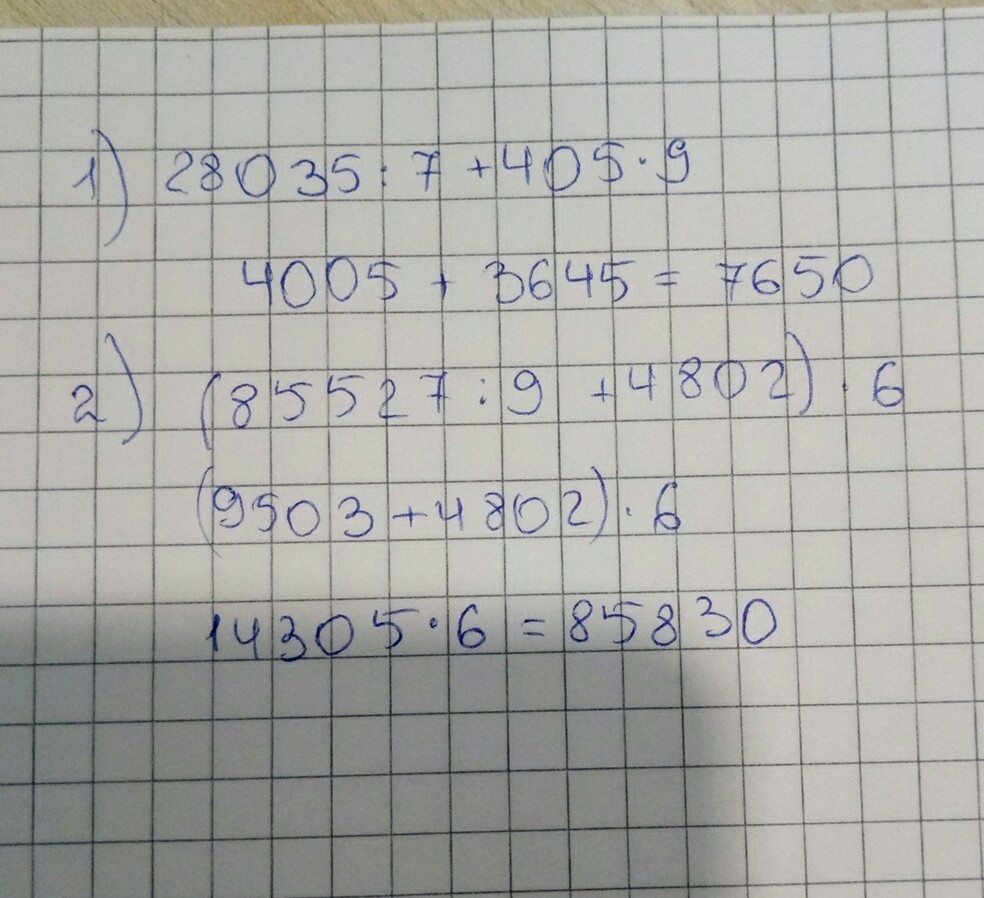 1) 28035 : 7 + 405 · 9
4005 + 3645 = 7650
2) (85527 : 9 + 4802) · 6
(9503 + 4802) · 6
14305 · 6 = 85830